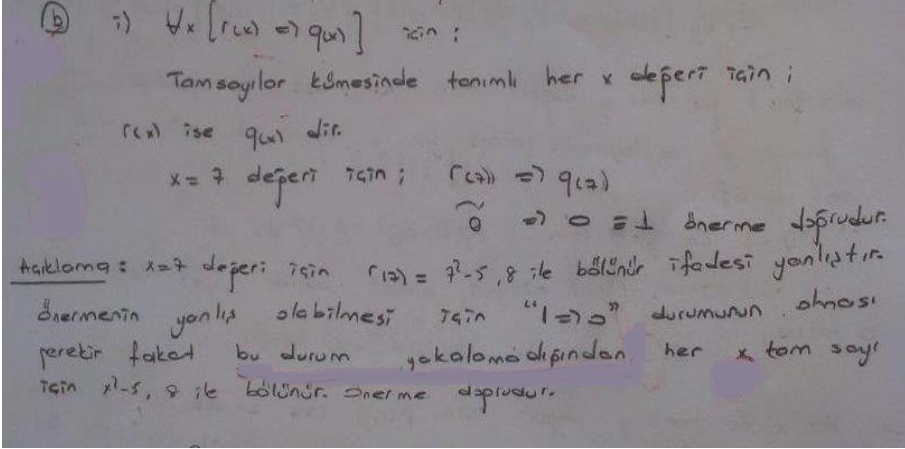 b i) ∀x [r(x) => q(x)] için ;
Tamsayılar kümesinde tanımlı her x değeri için ;
r(x) ise q(x) dir.
x = 7 değeri için ; r(7) => q(7)
0 => 0 ≡ 1 önerme doğrudur.
Açıklama : x=7 değeri için r(7) = 7²-5 , 8 ile bölünür ifadesi yanlıştır.
Önermenin yanlış olabilmesi için "1=>0" durumunun olması
gerekir fakat bu durum yakalamadığından her x tam sayı
için x²-5, 8 ile bölünür. Önerme doğrudur.